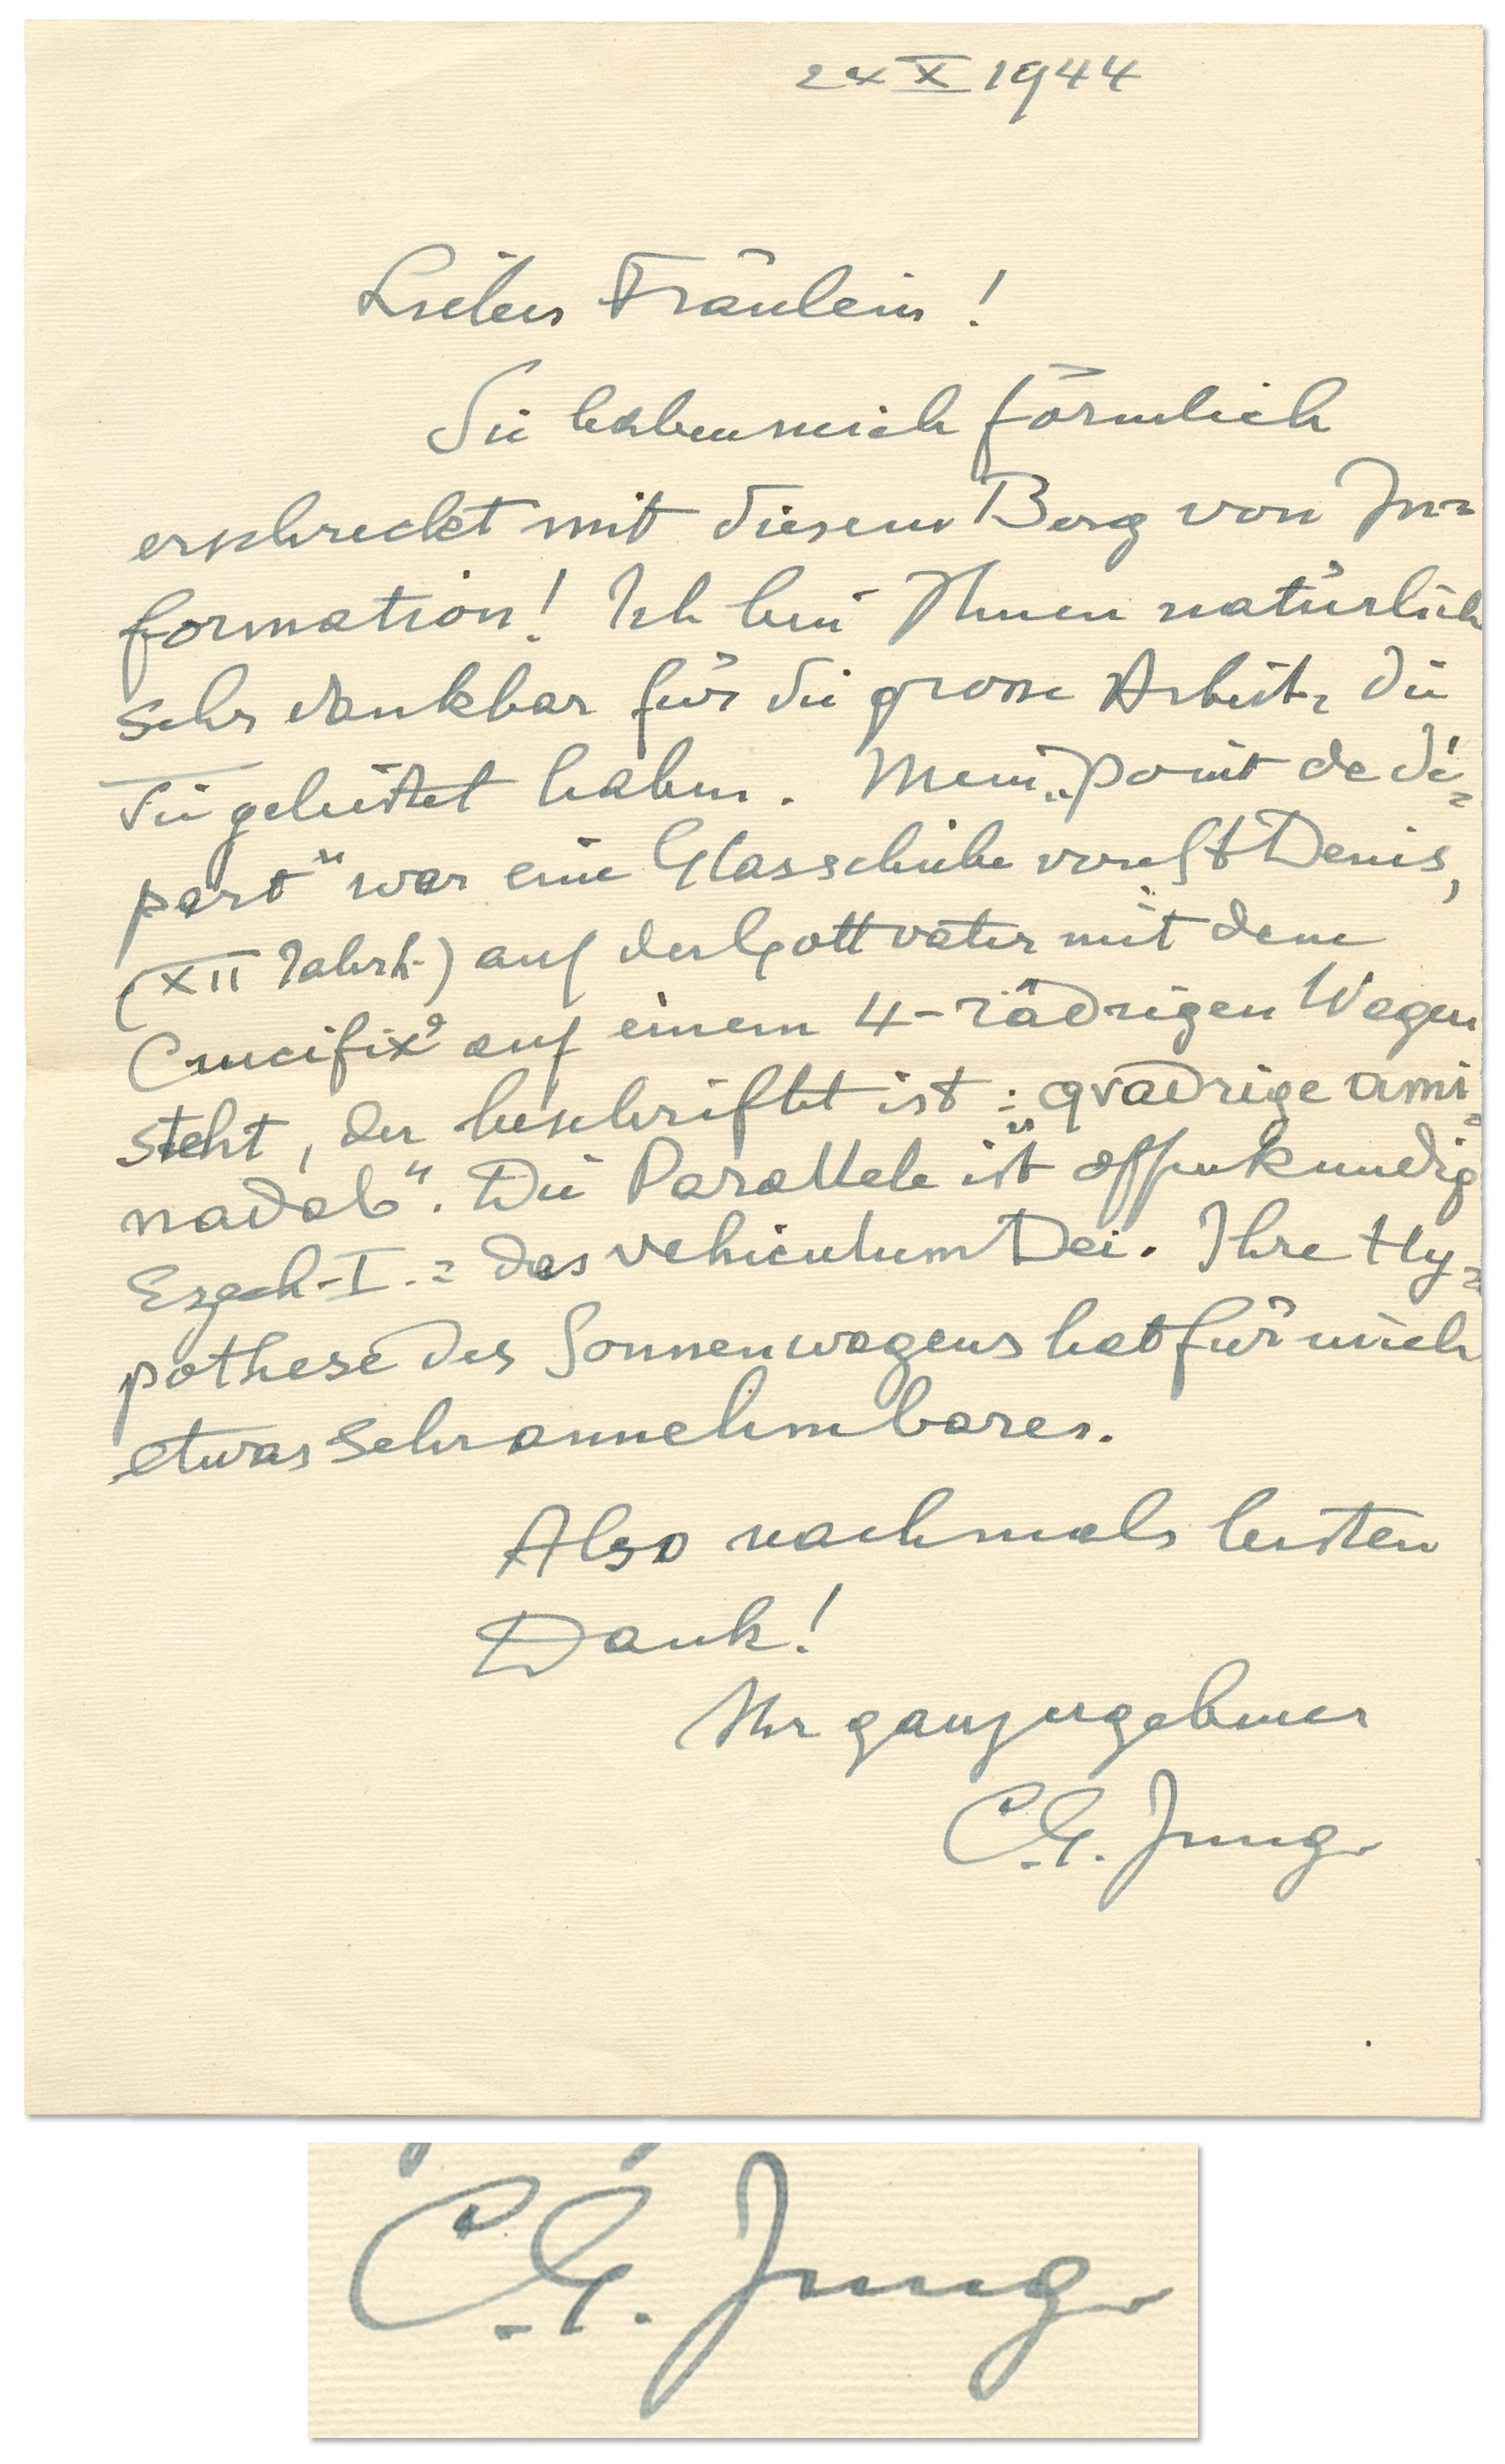 24 X 1944
Liebes Fräulein!
Sie haben mich förmlich
erschreckt mit diesem Berg von In=
formation! Ich bin Ihnen natürlich
sehr dankbar für die grosse Arbeit, die
Sie geleistet haben. Mein „point de dé=
part" war eine Glasscheibe von St Denis,
(XII Jahrh.) auf der Gottvater mit dem
Crucifix auf einem 4-rädrigen Wagen
steht, der beschriftet ist: „qvadrige ami=
nadab". Die Parallele ist offenkundig
Ezech-I. = das vehiculum Dei. Ihre Hy=
pothese des Sonnenwagens hat für mich
etwas sehr annehmbares.
Also nochmals besten
Dank!
Ihr ganz ergebener
C.G. Jung
C.G. Jung